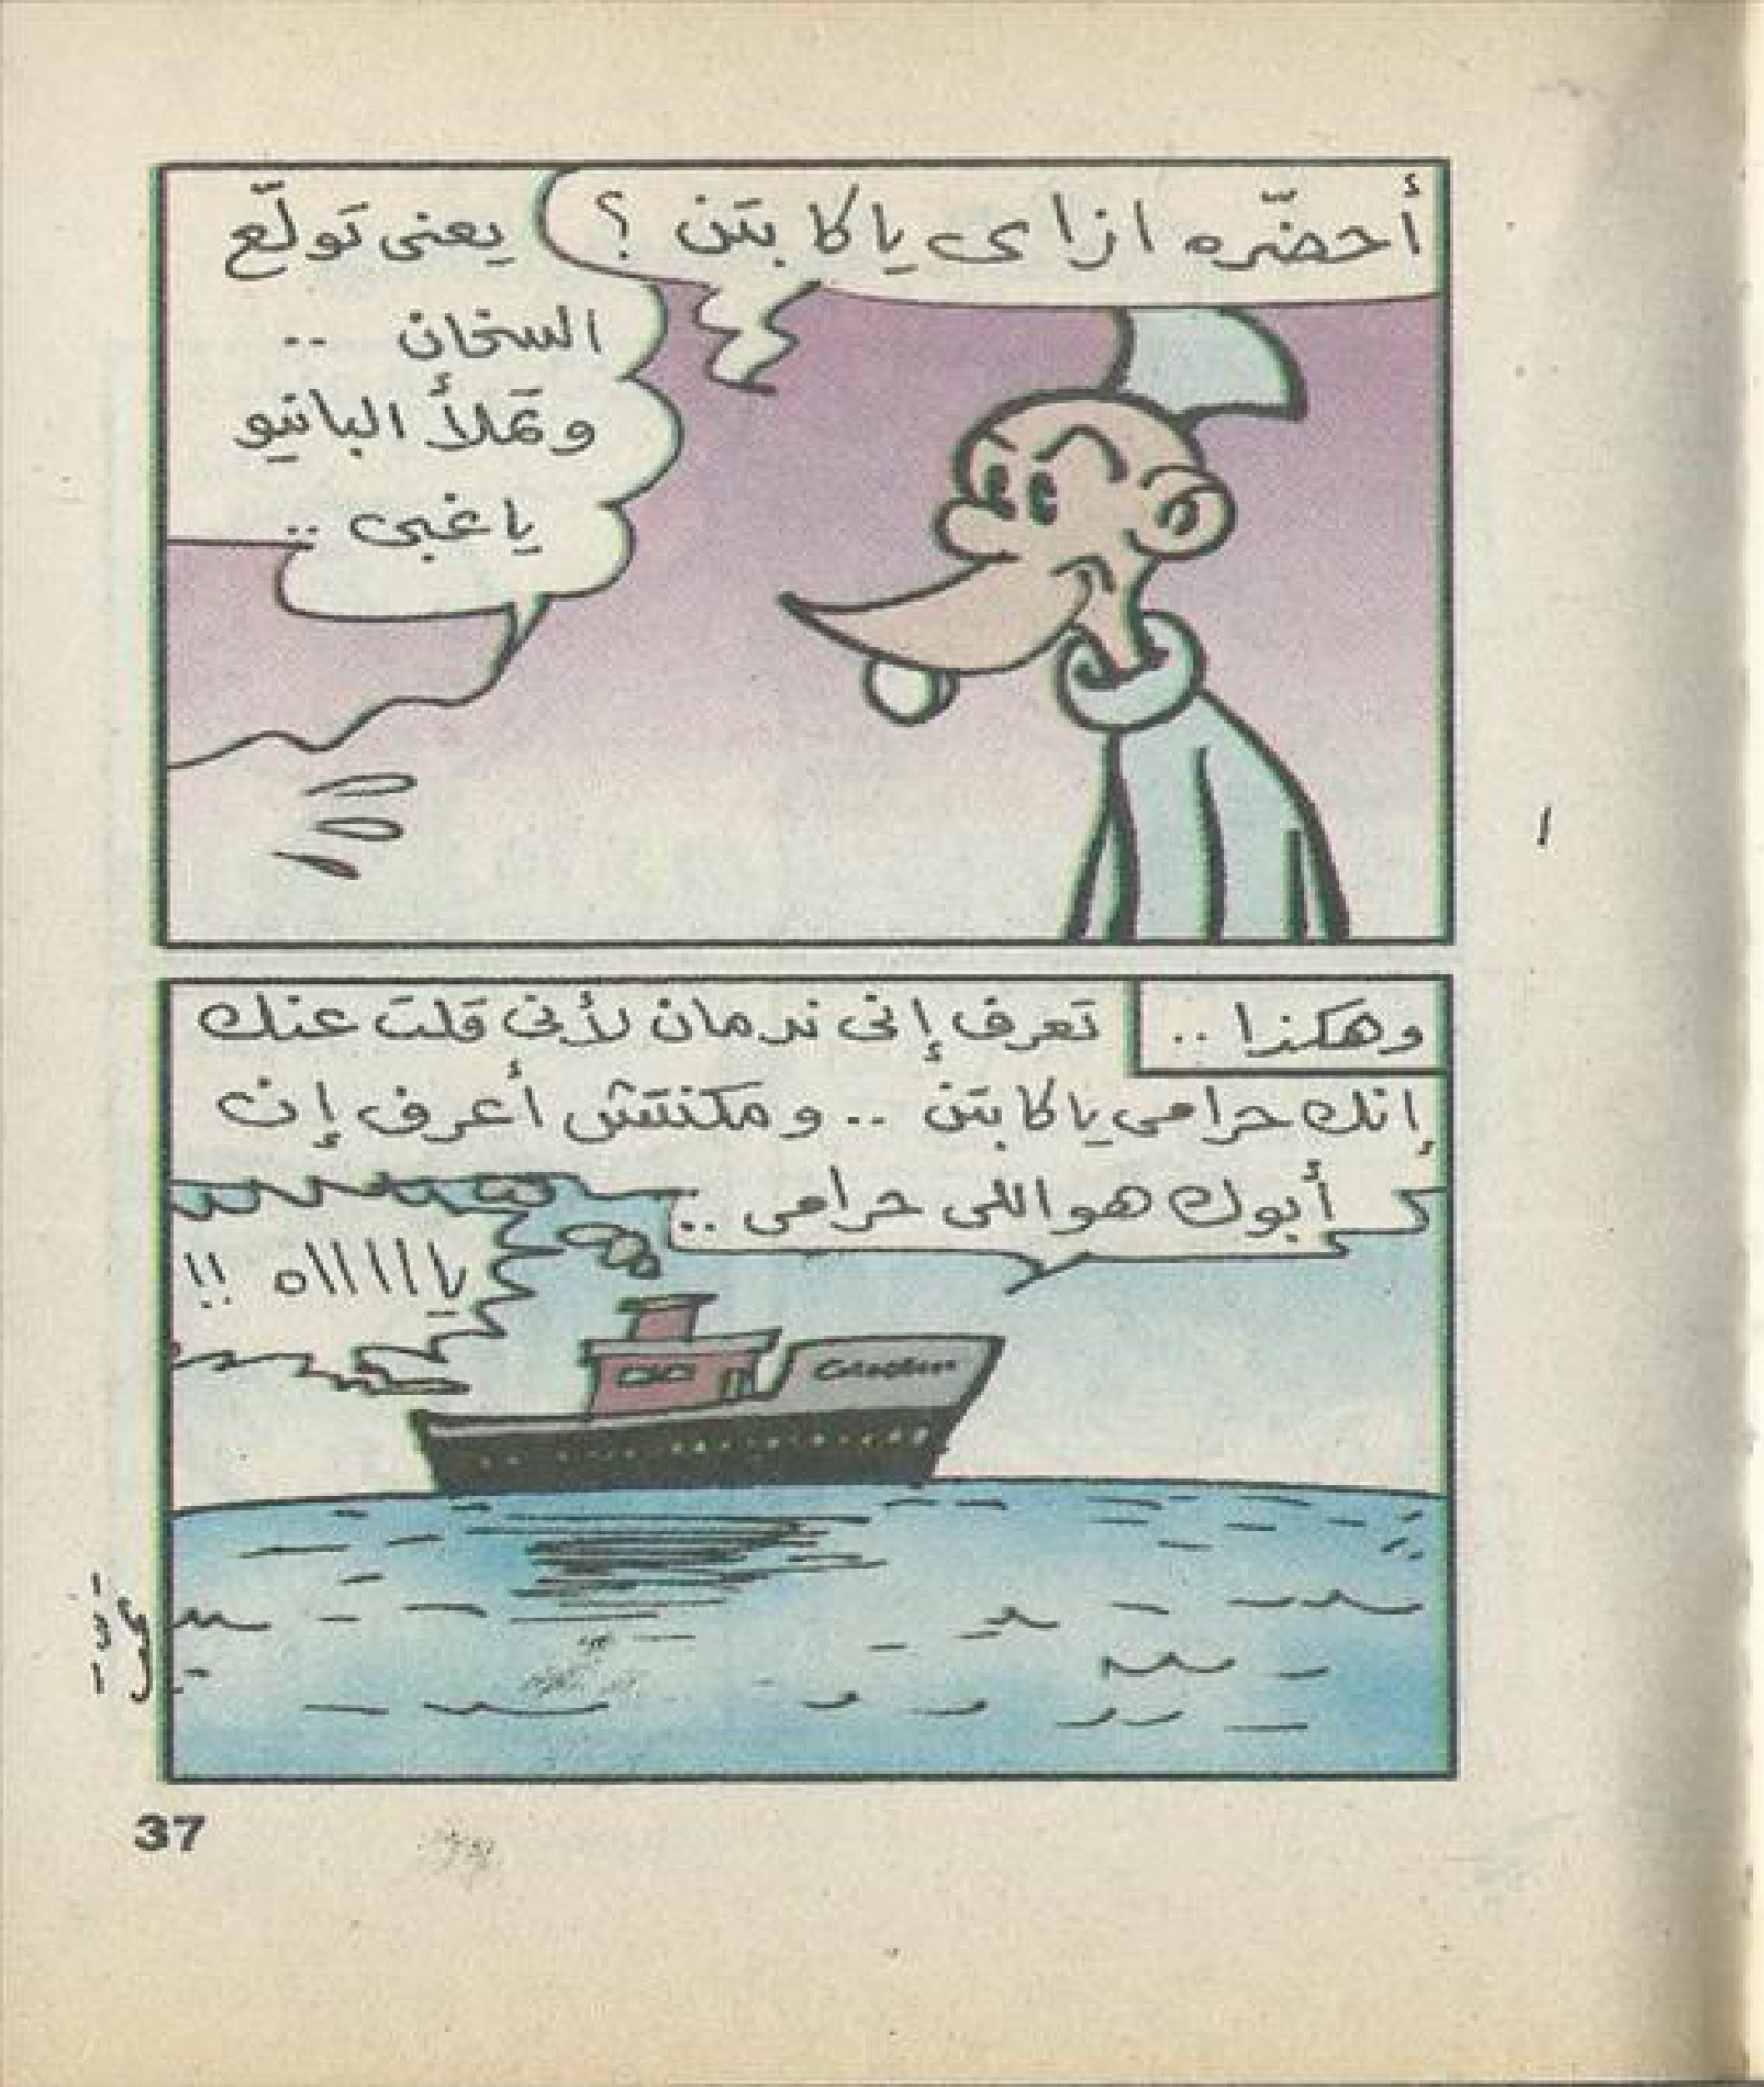 أحضّره ازاى ياكابتن ؟
يعنى تَولّع
السخان ..
وتملأ البانيو
ياغبى ..
وهكذا ..
تعرف إنى ندمان لأنى قلت عنك
إنك حرامى ياكابتن .. ومكنتش أعرف إن
أبوك هواللى حرامى ..
ياااااه !!
37